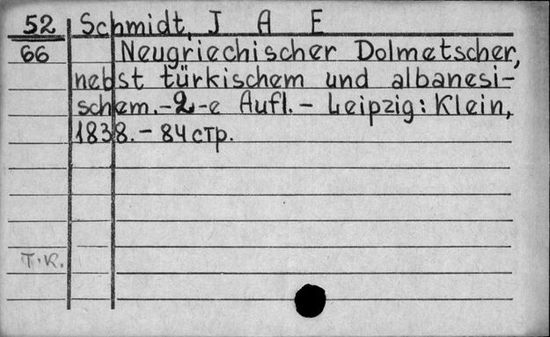 52 Schmidt, J A E
66 Neugriechischer Dolmetscher,
nebst türkischem und albanesi-
schem.-2-e Aufl.- Leipzig: Klein,
1838.- 84 стр.
Т.К.